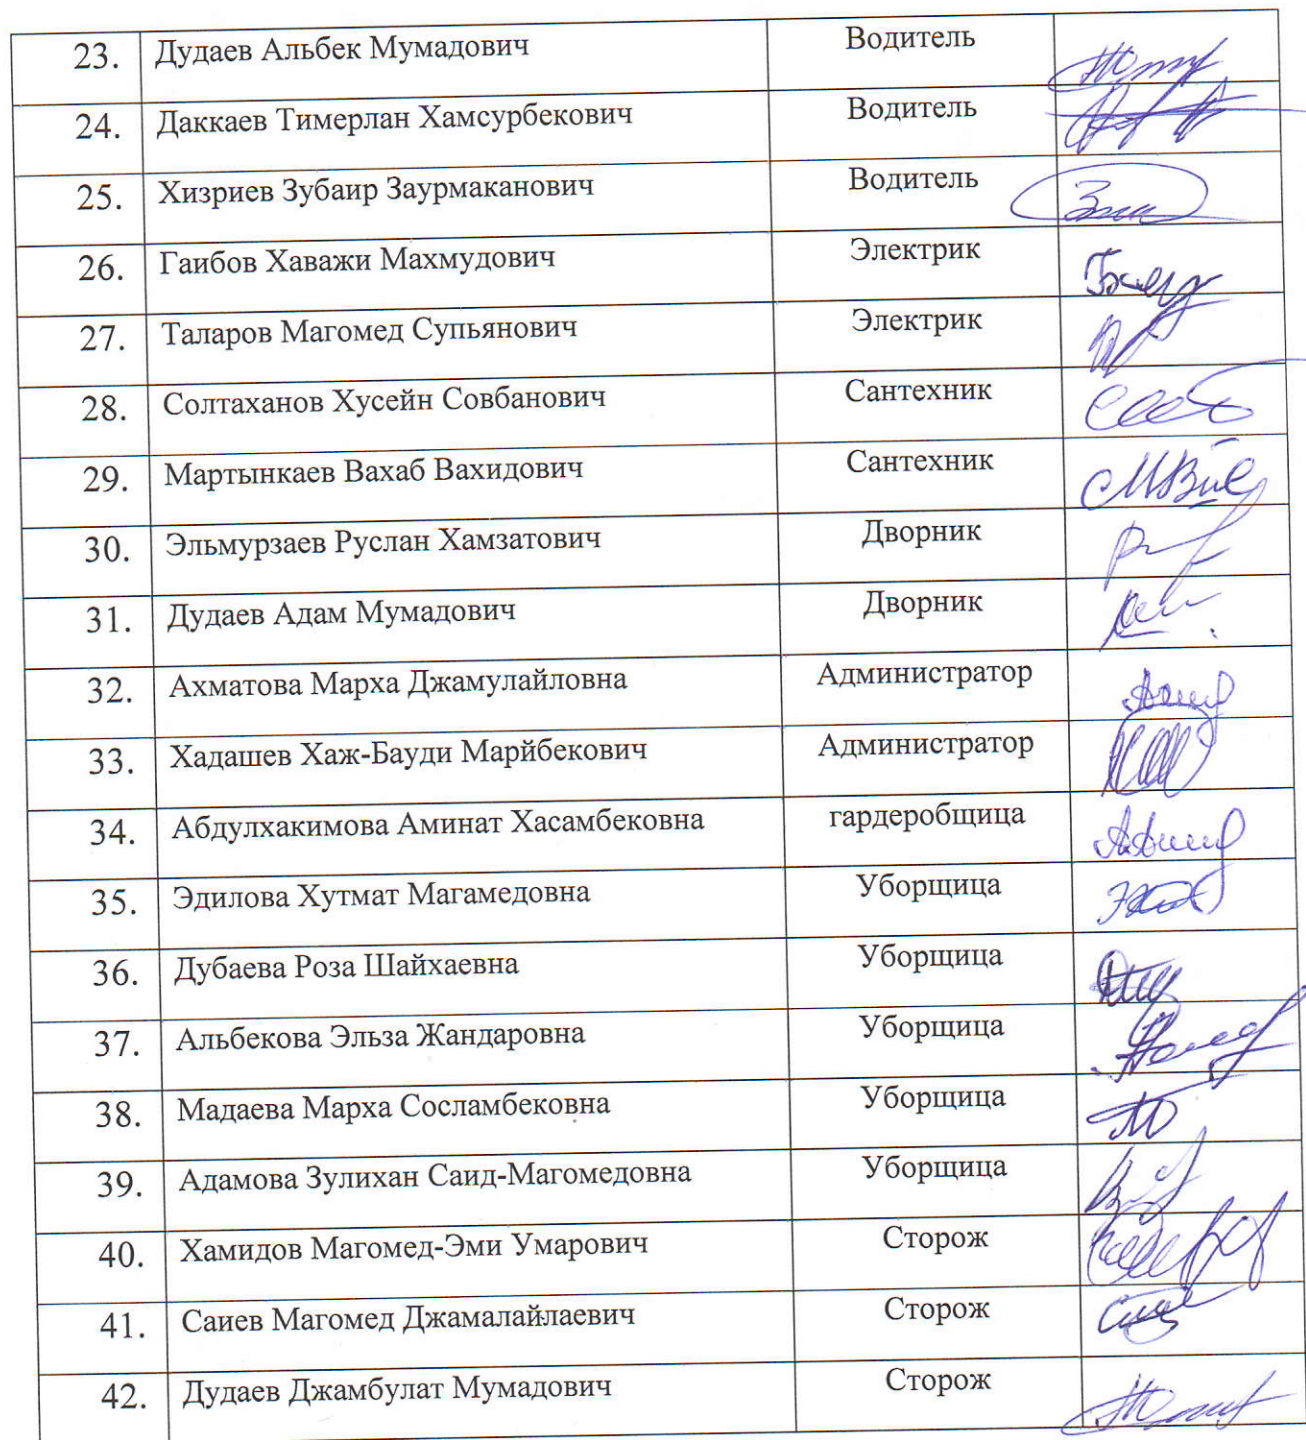 23. Дудаев Альбек Мумадович Водитель
24. Даккаев Тимерлан Хамсурбекович Водитель
25. Хизриев Зубаир Заурмаканович Водитель
26. Гаибов Хаважи Махмудович Электрик
27. Таларов Магомед Супьянович Электрик
28. Солтаханов Хусейн Совбанович Сантехник
29. Мартынкаев Вахаб Вахидович Сантехник
30. Эльмурзаев Руслан Хамзатович Дворник
31. Дудаев Адам Мумадович Дворник
32. Ахматова Марха Джамулайловна Администратор
33. Хадашев Хаж-Бауди Марйбекович Администратор
34. Абдулхакимова Аминат Хасамбековна гардеробщица
35. Эдилова Хутмат Магамедовна Уборщица
36. Дубаева Роза Шайхаевна Уборщица
37. Альбекова Эльза Жандаровна Уборщица
38. Мадаева Марха Сосламбековна Уборщица
39. Адамова Зулихан Саид-Магомедовна Уборщица
40. Хамидов Магомед-Эми Умарович Сторож
41. Саиев Магомед Джамалайлаевич Сторож
42. Дудаев Джамбулат Мумадович Сторож